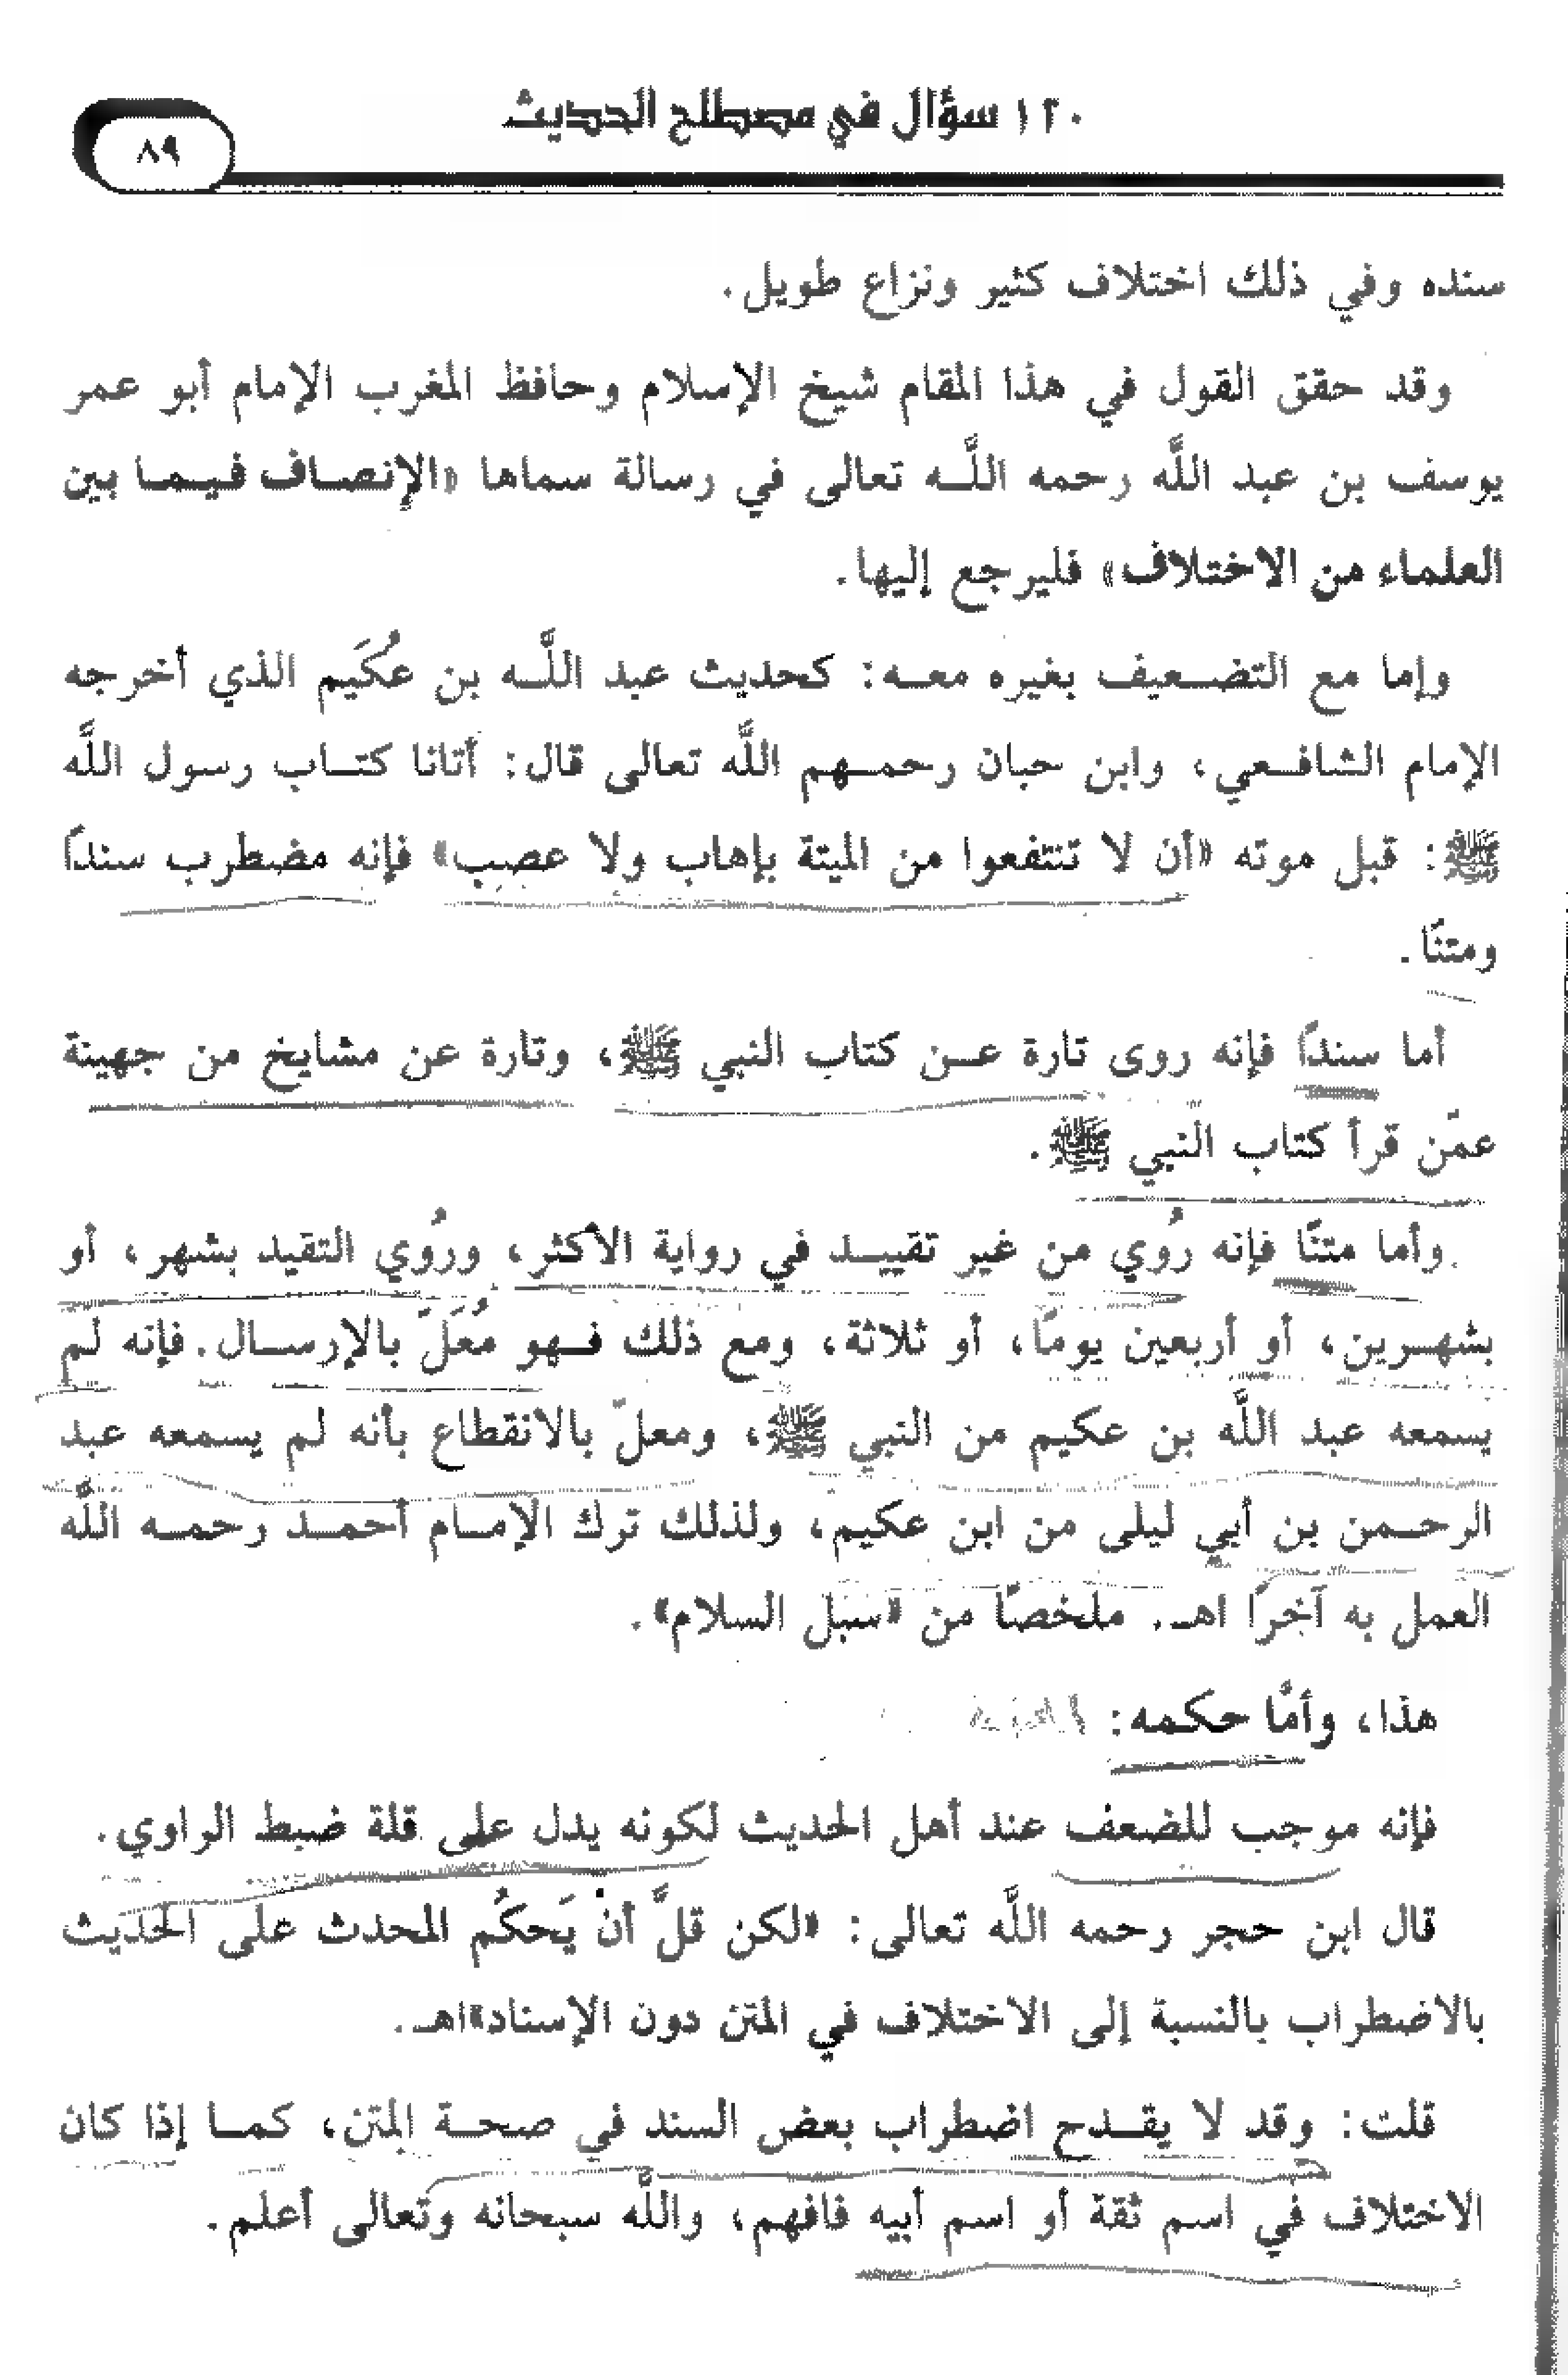 ١٢٠ سؤال في مصطلح الحديث
٨٩
سنده وفي ذلك اختلاف كثير ونزاع طويل.
وقد حقق القول في هذا المقام شيخ الإسلام وحافظ المغرب الإمام أبو عمر
يوسف بن عبد اللَّه رحمه اللَّـه تعالى في رسالة سماها «الإنصـاف فـيـمـا بين
العلماء من الاختلاف» فليرجع إليها.
وإما مع التضـعيف بغيره معـه: كـحديث عبد اللَّـه بن عُكَيم الذي أخرجه
الإمام الشافـعي، وابن حبان رحمـهم اللَّه تعالى قال: أتانا كتـاب رسول اللَّه
ﷺ: قبل موته «أن لا تنتفعوا من الميتة بإهاب ولا عصب» فإنه مضطرب سندًا
ومتنًا.
أما سندًا فإنه روى تارة عـن كتاب النبي ﷺ، وتارة عن مشايخ من جهينة
عمّن قرأ كتاب النبي ﷺ.
وأما متنًا فإنه رُوي من غير تقييـد في رواية الأكثر، ورُوي التقيد بشهر، أو
بشهـرين، أو أربعين يومًا، أو ثلاثة، ومع ذلك فـهو مُعَلّ بالإرسـال. فإنه لم
يسمعه عبد اللَّه بن عكيم من النبي ﷺ، ومعلّ بالانقطاع بأنه لم يسمعه عبد
الرحـمن بن أبي ليلى من ابن عكيم، ولذلك ترك الإمـام أحمـد رحمـه اللَّه
العمل به آخرًا اهـ. ملخصًا من «سبل السلام».
هذا، وأمَّا حكمه:
فإنه موجب للضعف عند أهل الحديث لكونه يدل على قلة ضبط الراوي.
قال ابن حجر رحمه اللَّه تعالى: «لكن قلَّ أنْ يَحكُم المحدث على الحديث
بالاضطراب بالنسبة إلى الاختلاف في المتن دون الإسناد»اهـ.
قلت: وقد لا يقـدح اضطراب بعض السند في صحـة المتن، كمـا إذا كان
الاختلاف في اسم ثقة أو اسم أبيه فافهم، واللَّه سبحانه وتعالى أعلم.